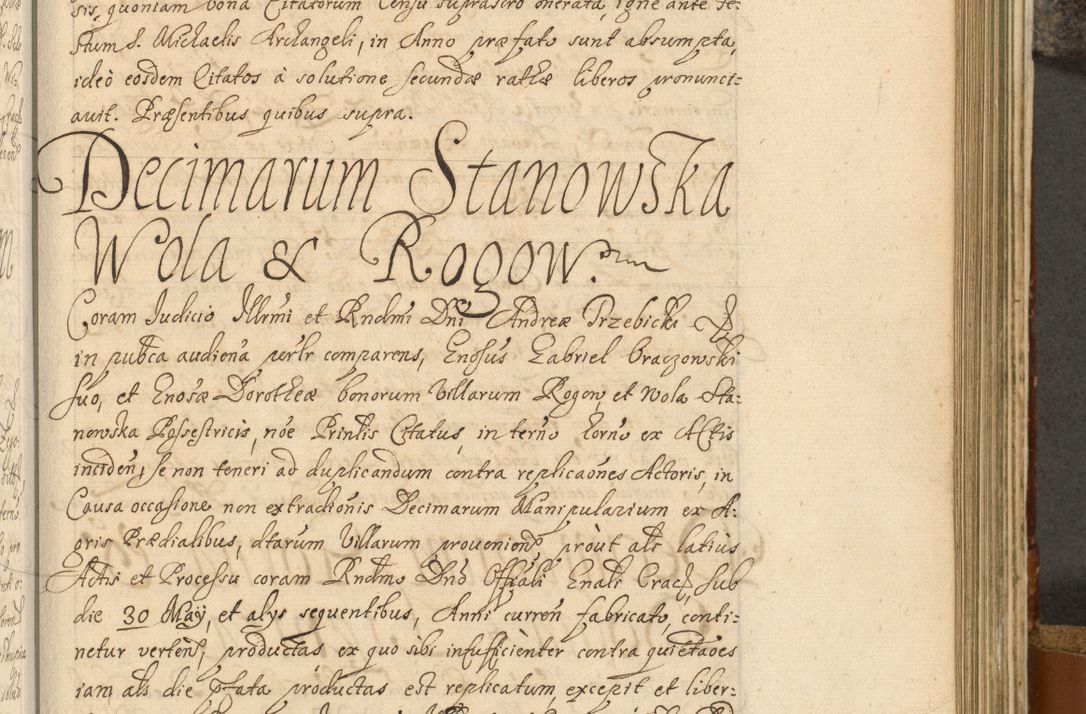 sis, quoniam bona Citatorum Censu suprascro onerata, igne ante fe=
stum S. Michaelis Archangeli, in Anno præfato sunt absumpta,
ideò eosdem Citatos à solutione secundæ rathæ liberos pronunci=
avit. Præsentibus quibus supra.
Decimarum Stanowska
Wola & Rogow.
Coram Judicio Illrmi et Rndmi Dni Andreæ Trzebicki
in pubca audiena perlr comparens, Gnosus Gabriel Graczowski
suo, et Gnosæ Dorotheæ bonorum Villarum Rogow, et Wola Sta=
nowska Possestricis, nõe Prinlis Citatus, in terno horno ex Actis
inciden, se non teneri ad duplicandum contra replicaões Actoris, in
Causa occasione non extradionis Decimarum Manipularium ex A=
gris Prædialibus, dtarum Villarum provenien, pròut als latius
Actis et Processu coram Rndmo Dno Offali Gnali Crac, sub
die 30 Maÿ, et alys sequentibus, Anni curren fabricato, conti=
netur verten, productas ex quo sibi insufficienter contra quietaões
iam als die pfata pròductas est replicatum, excepit et liber=